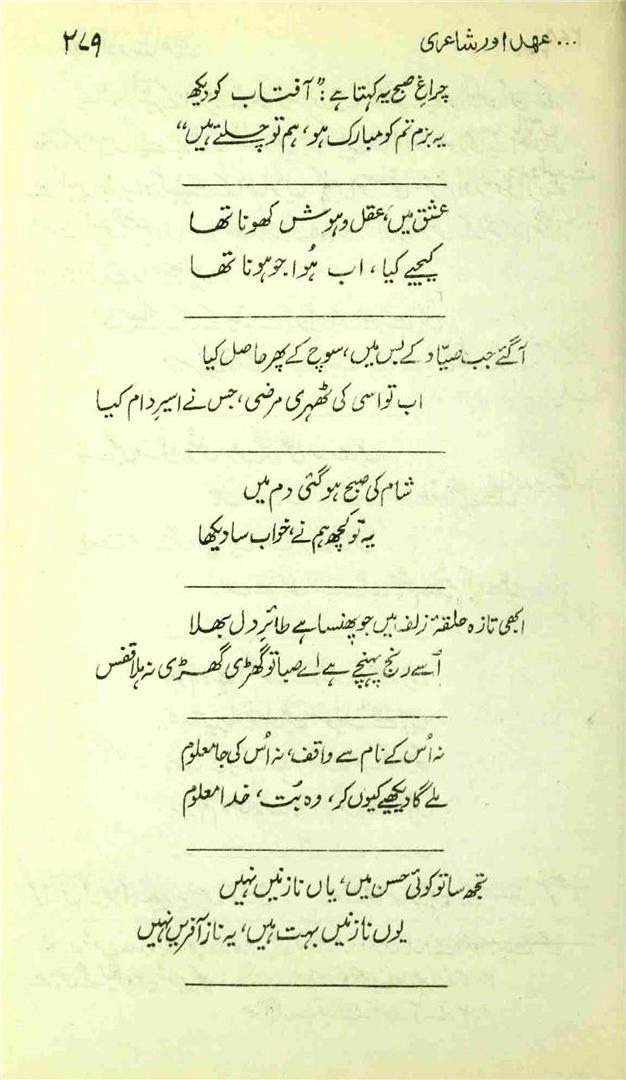 ... عہد اور شاعری ۲۷۹
چراغِ صبح یہ کہتا ہے: "آفتاب کو دیکھ
یہ بزم تم کو مبارک ہو، ہم تو چلتے ہیں"
عشق میں، عقل و ہوش کھونا تھا
کیجیے کیا، اب ہُوا جو ہونا تھا
آ گئے جب صیّاد کے بس میں، سوچ کے پھر حاصل کیا
اب تو اسی کی ٹھہری مرضی، جس نے اسیرِ دام کیا
شام کی صبح ہو گئی دم میں
یہ تو کچھ ہم نے، خواب سا دیکھا
ابھی تازہ حلقۂ زلف میں جو پھنسا ہے طائرِ دل بھلا
اُسے رنج پہنچے ہے اے صبا تو گھڑی گھڑی نہ ہلا قفس
نہ اُس کے نام سے واقف، نہ اُس کی جا معلوم
ملے گا دیکھیے کیوں کر، وہ بُت، خدا معلوم
تجھ سا تو کوئی حسن میں، یاں نازنیں نہیں
یوں نازنیں بہت ہیں، یہ ناز آفریں نہیں